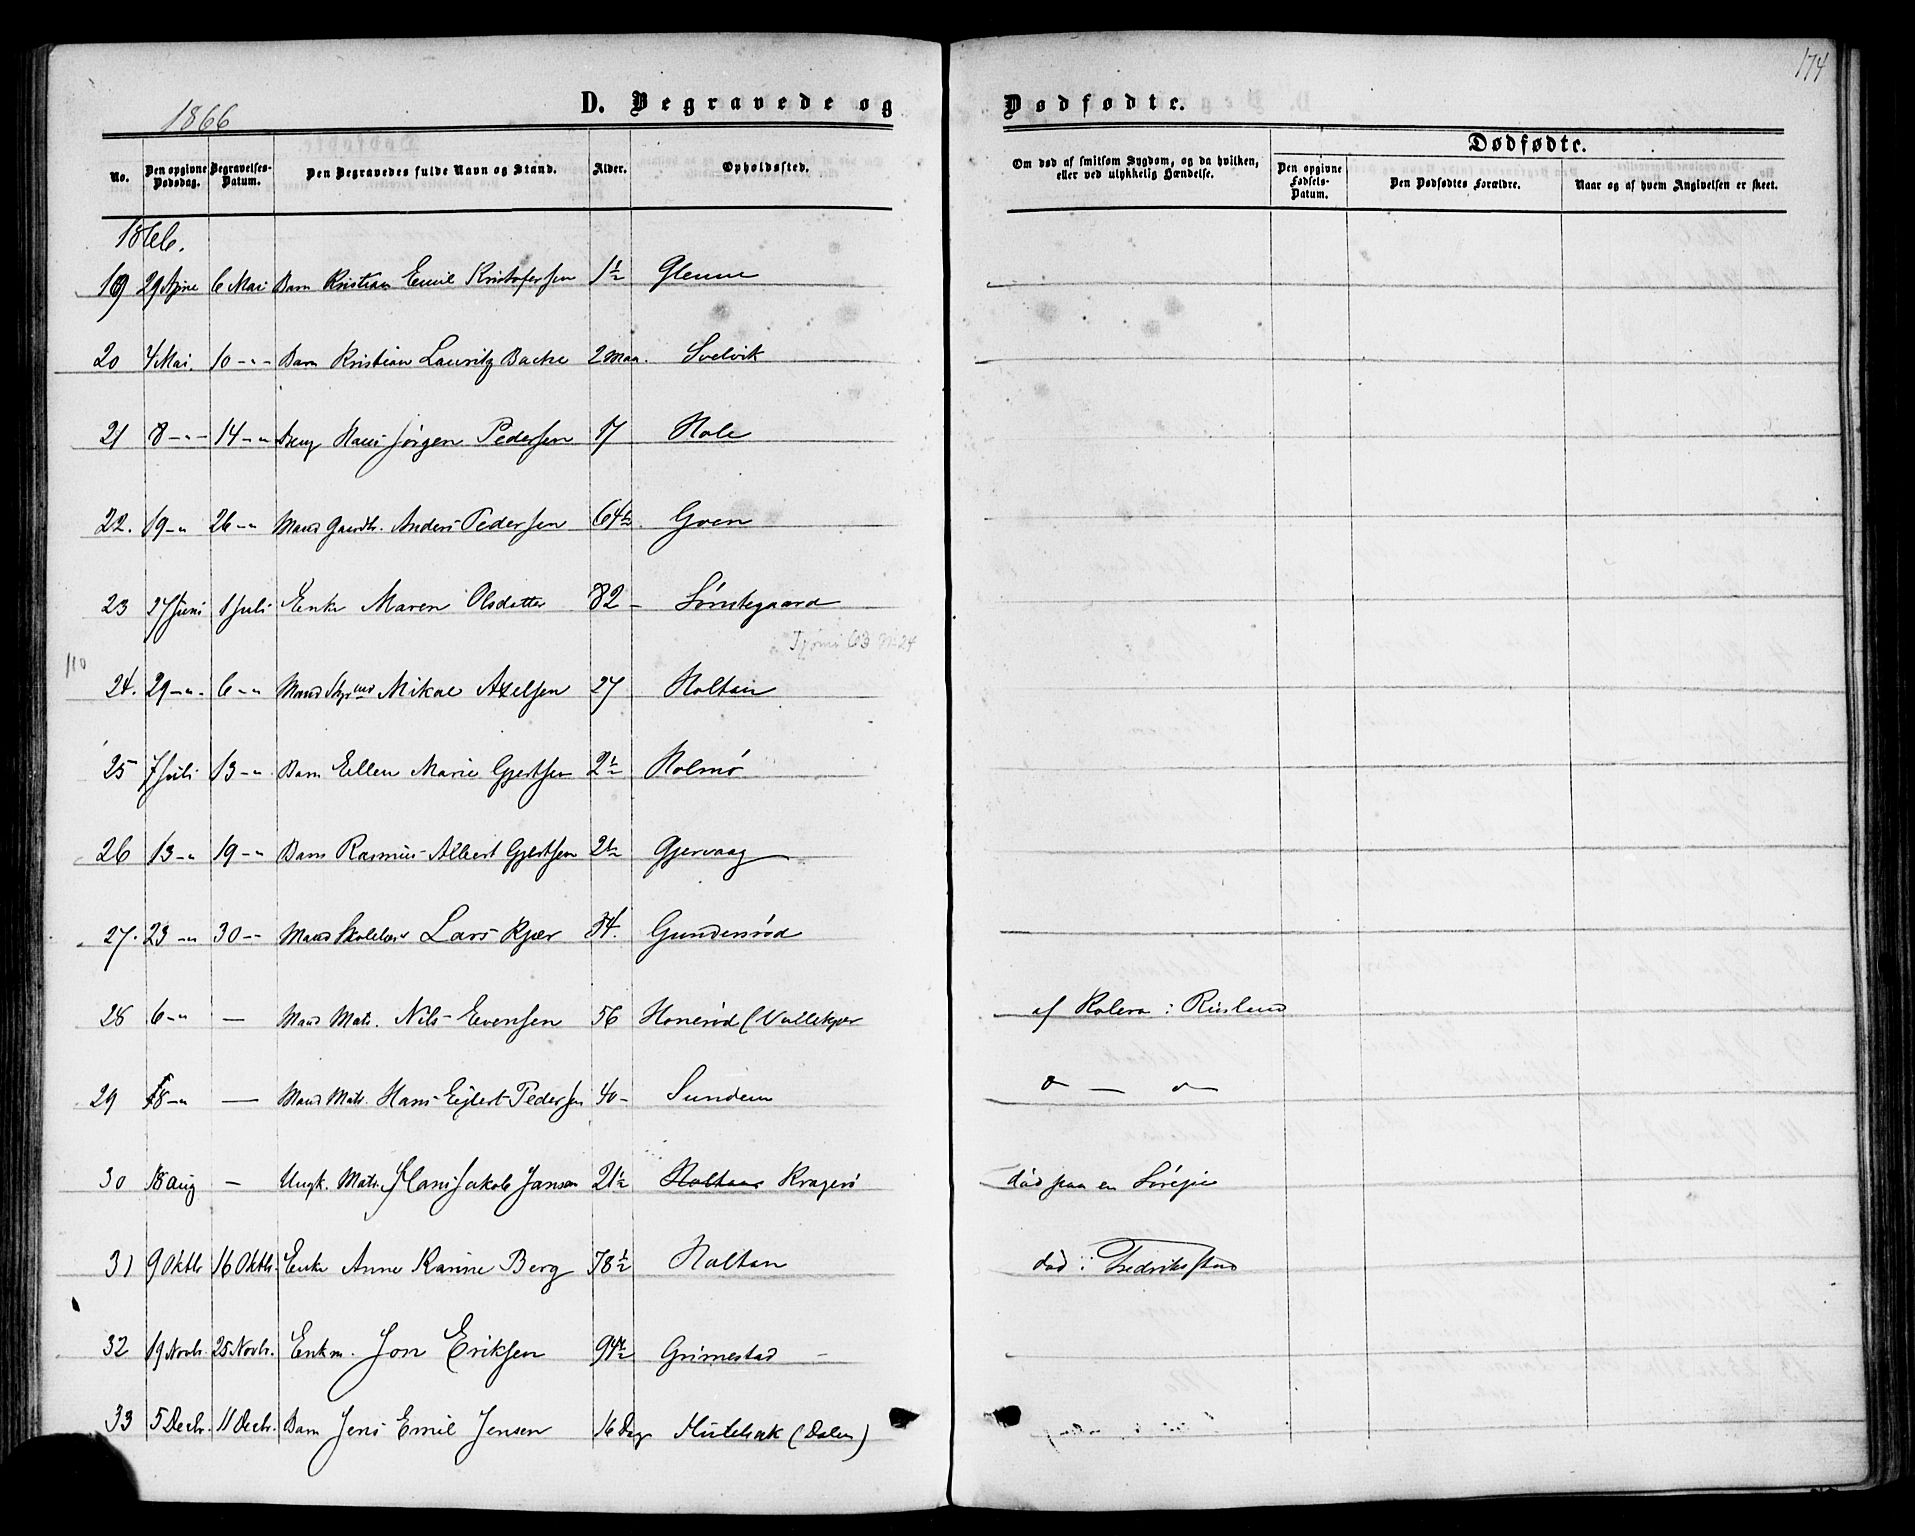 174
1866
D. Begravede og Dødfødte.
No. Den opgivne Dødsdag. Begravelses-Datum. Den Begravedes fulde Navn og Stand. Alder. Opholdssted. Om død af smitsom Sygdom, og da hvilken, eller ved ulykkelig Hændelse. Dødfødte.
Den opgivne Fødsels-Datum. Den Dødfødtes Forældre. Naar og af hvem Angivelsen er skeet.
1866.
19 29 Apine 6 Mai Barn Kristian Emil Kristofersen 1½ Glenne
20 4 Mai. 10 -"- Barn Kristian Lauritz Backe 2 Maa. Svelvik
21 8 -"- 14 -"- Dreng Hans Jørgen Pedersen 17 Hole
22. 19 -" 26 -" Mand Gaardbr. Anders Pedersen 64½ Goen
23 27 Juni 1 Juli Enke Maren Olsdatter 82 - Søndegaard
Tjømø 63 N 24
110
24. 29 -"- 6 -" Mand Styrmd Mikal Axelsen 27 Holtan
25 7 Juli 13 -" Barn Ellen Marie Gjertsen 2½ Holmø
26 13 -" 19 -" Barn Rasmus Albert Gjertsen 2½ Gjervaag
27. 23 -" 30 -- Mand Skolelær Lars Kjær 34. Gundersrød
28 6 -" — Mand Matr. Nils Evensen 56 Honerød (Vallekjær af Kolera i Rusland
29 18 -" — Mand Matr. Hans Eilert Pedersen 40 - Sundene do — do
30 18 Aug — Ungk. Matr. Hans Jakob Jansen 21½ Holtan Kragerø død paa en Sørejse
31 9 Oktbr 16 Oktbr. Enke Anne Karine Berg 78½ Holtan død i Fredrikstad
32 19 Novbr. 25 Novbr. Enkm. Jon Eriksen 94½ Grimestad -
33 5 Decbr. 11 Decbr. Barn Jens Emil Jensen 16 Dag Hulebak (Dalen)